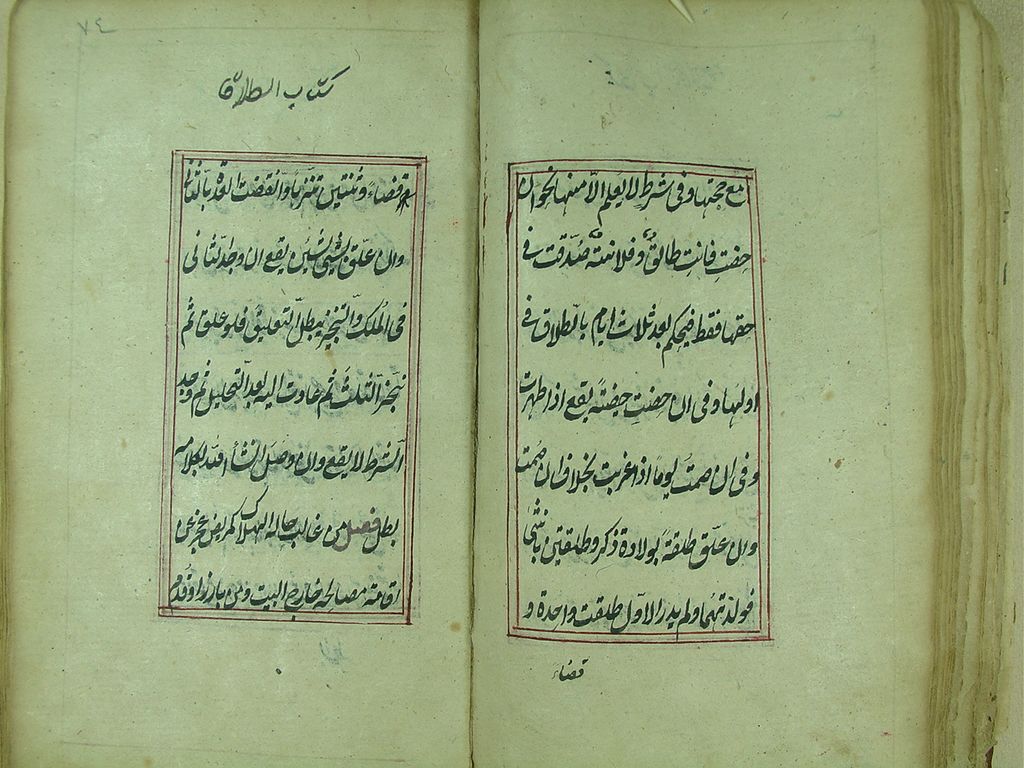 مع حجتها وفى شرط لا يعلم الّا منها نحو ان
حضتِ فانتِ طالق وفلانة صُدّقت فى
حقها فقط فيحكم بعد ثلاث ايام بالطلاق فى
اولها وفى ان حضتِ حيضةً يقع اذا طهرت
وفى ان صمتِ يوماً اذا غربت بخلاف ان صمت
وان علّق طلقةً بولادة ذكر وطلقتين بانثى
فولدتهما ولم يدر الاوّل طلقت واحدة و
قضاء
٧٤
كتاب الطلاق
قضاءً وثنتين تنزهاً وانقضت العدة بالثانى
وان علّق بشيئين يقع ان وجد الثانى
فى الملك والتنجيز يبطل التعليق فلو علق ثم
نجّز الثلث ثم عادت اليه بعد التحليل ثم وجد
الشرط لا يقع وان وصل انشأ الله بكلامه
بطل فصل من غالب حاله الهلاك كمريض عجز عن
اقامة مصالحه خارج البيت ومن بارز او قدم